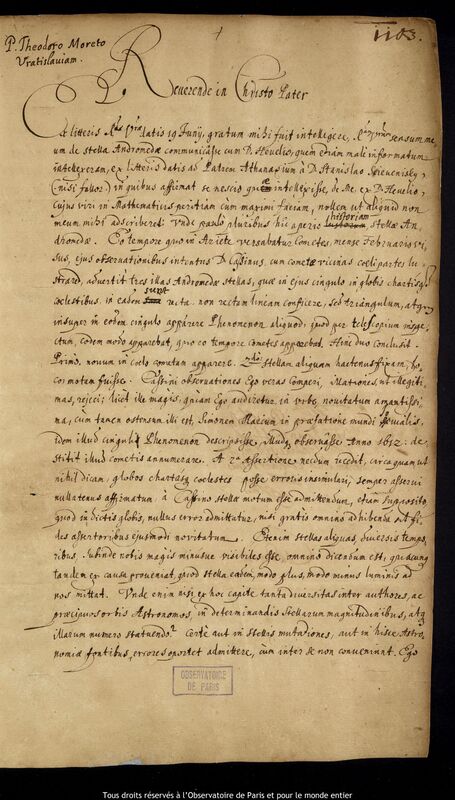 P. Theodoro Moreto
Vratislaviam.
1
1103.
Reverende in Christo Pater
P.
Ex litteris Rae Vrae datis 19 Junij, gratum mihi fuit intelligere, Ram Vram sensum me-
um de stella Andromedae communicasse cum D. Hevelio, quem etiam malè informatum
intellexeram, ex litteris datis ad Patrem Athanasium à D. Stanislao
(nisi fallor) in quibus affirmat se nescio quid intellexisse, de Me, ex D. Hevelio,
Cujus viri in Mathematicis peritiam cum maximi faciam, nollem ut aliquid non
meum mihi adscriberet. Unde paulo pluribus hic aperio historiam stellae An-
dromedae. Eo tempore quo in Ariete versabatur Cometes mense Februario vi-
sus, ejus observationibus intentus D. Cassinus, cum cometae vicinas coeli partes lu-
straret, advertit tres illas Andromedae stellas, quae in ejus cingulo in globis chartisque
coelestibus in eadem sunt recta non rectam lineam conficere, sed triangulum, atque
insuper in eodem cingulo apparere Phenomenon aliquod, quod per telescopium inspe-
ctum, eodem modo apparebat, quo eo tempore cometes apparebat. Hinc duo conclusit.
Primo, novum in coelo cometam apparere. 2do Stellam aliquam hactenus fixam, lo-
co motam fuisse. Cassini observationes Ego veras comperi, Illationes, ut illegiti-
mas, rejeci; licet ille magis, quam Ego audiretur, in urbe, novitatum amantissi-
ma, cum tamen ostensum illi est, Simonem Marium in praefatione mundi Jovialis,
idem illud cinguli Phenomenon descripsisse, illudque observasse Anno 1612. de-
stitit illud cometis annumerare. A 2a Assertione necdum recedit, circa quam ut
nihil dicam, globos chartasque coelestes posse erroris insimulari, semper asserui
nullatenus affirmatum, à Cassino stellae motum esse admittendum, etiam supposito
quod in dictis globis, nullus error admittatur, nisi gratis omnino adhibenda sit fi-
des assertoribus ejusmodi novitatum. Etenim stellas aliquas, diversis tempo-
ribus, subinde nobis magis minusve visibiles esse, omnino dicendum est, quacunque
tandem ex causa proveniat, quod stella eadem, modo plus, modo minus luminis ad
nos mittat. Unde enim nisi ex hoc capite tanta diversitas inter authores, ac
praecipuos orbis Astronomos, in determinandis Stellarum magnitudinibus, atque
illarum numero statuendo? Certè aut in stellis mutationes, aut in hisce Astro-
nomiae fontibus, errores oportet admittere, cum inter se non conveniunt. Ego
OBSERVATOIRE
DE PARIS
Tous droits réservés à l'Observatoire de Paris et pour le monde entier